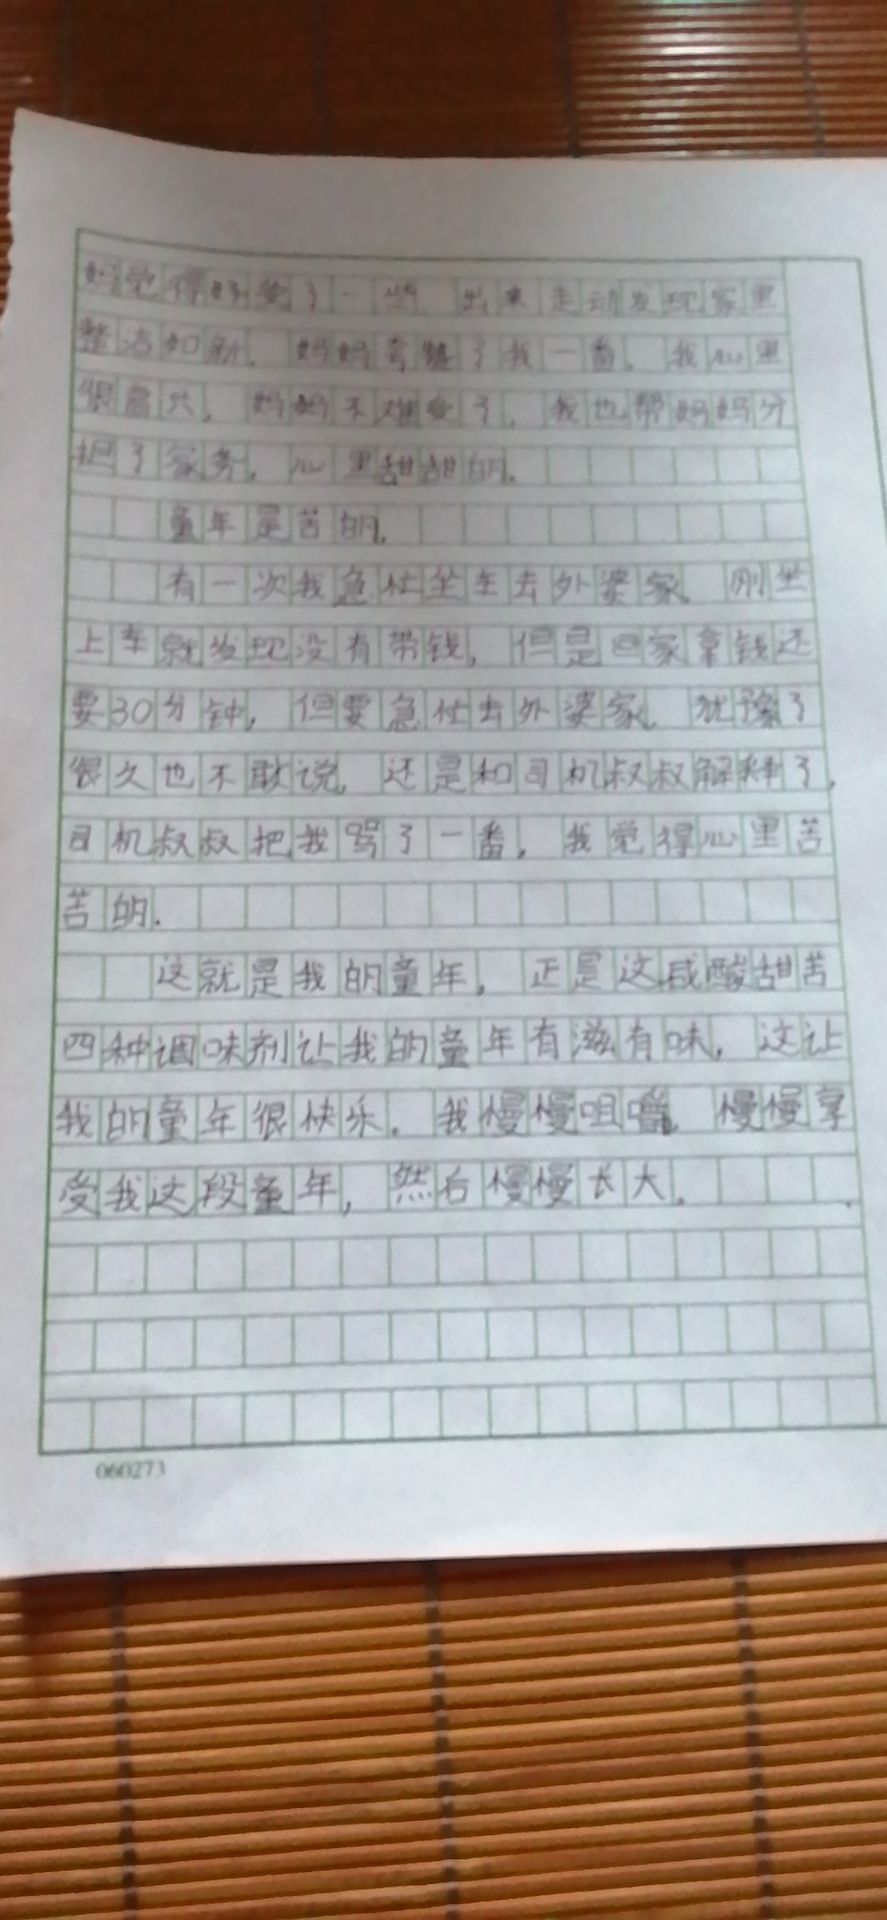 妈觉得好受了一些，出来走动发现家里
整洁如新，妈妈夸赞了我一番，我心里
很高兴，妈妈不难受了，我也帮妈妈分
担了家务，心里甜甜的。
童年是苦的。
有一次我急忙坐车去外婆家，刚坐
上车就发现没有带钱，但是回家拿钱还
要30分钟，但要急忙去外婆家，犹豫了
很久也不敢说，还是和司机叔叔解释了，
司机叔叔把我骂了一番，我觉得心里苦
苦的。
这就是我的童年，正是这咸酸甜苦
四种调味剂让我的童年有滋有味，这让
我的童年很快乐。我慢慢咀嚼，慢慢享
受我这段童年，然后慢慢长大。
060273